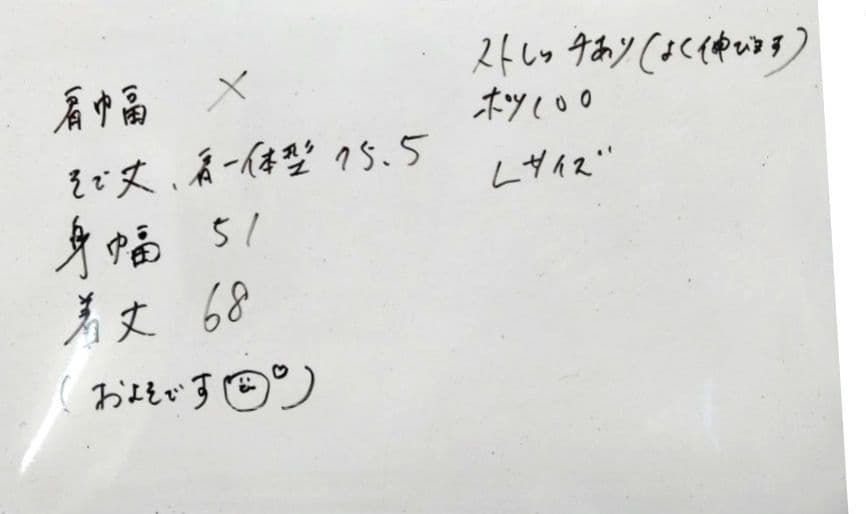 肩巾幅 ×
そで丈、肩一体型 75.5
身幅 51
着丈 68
(およそです)
ストレッチあり(よく伸びます)
ポリ100
Lサイズ